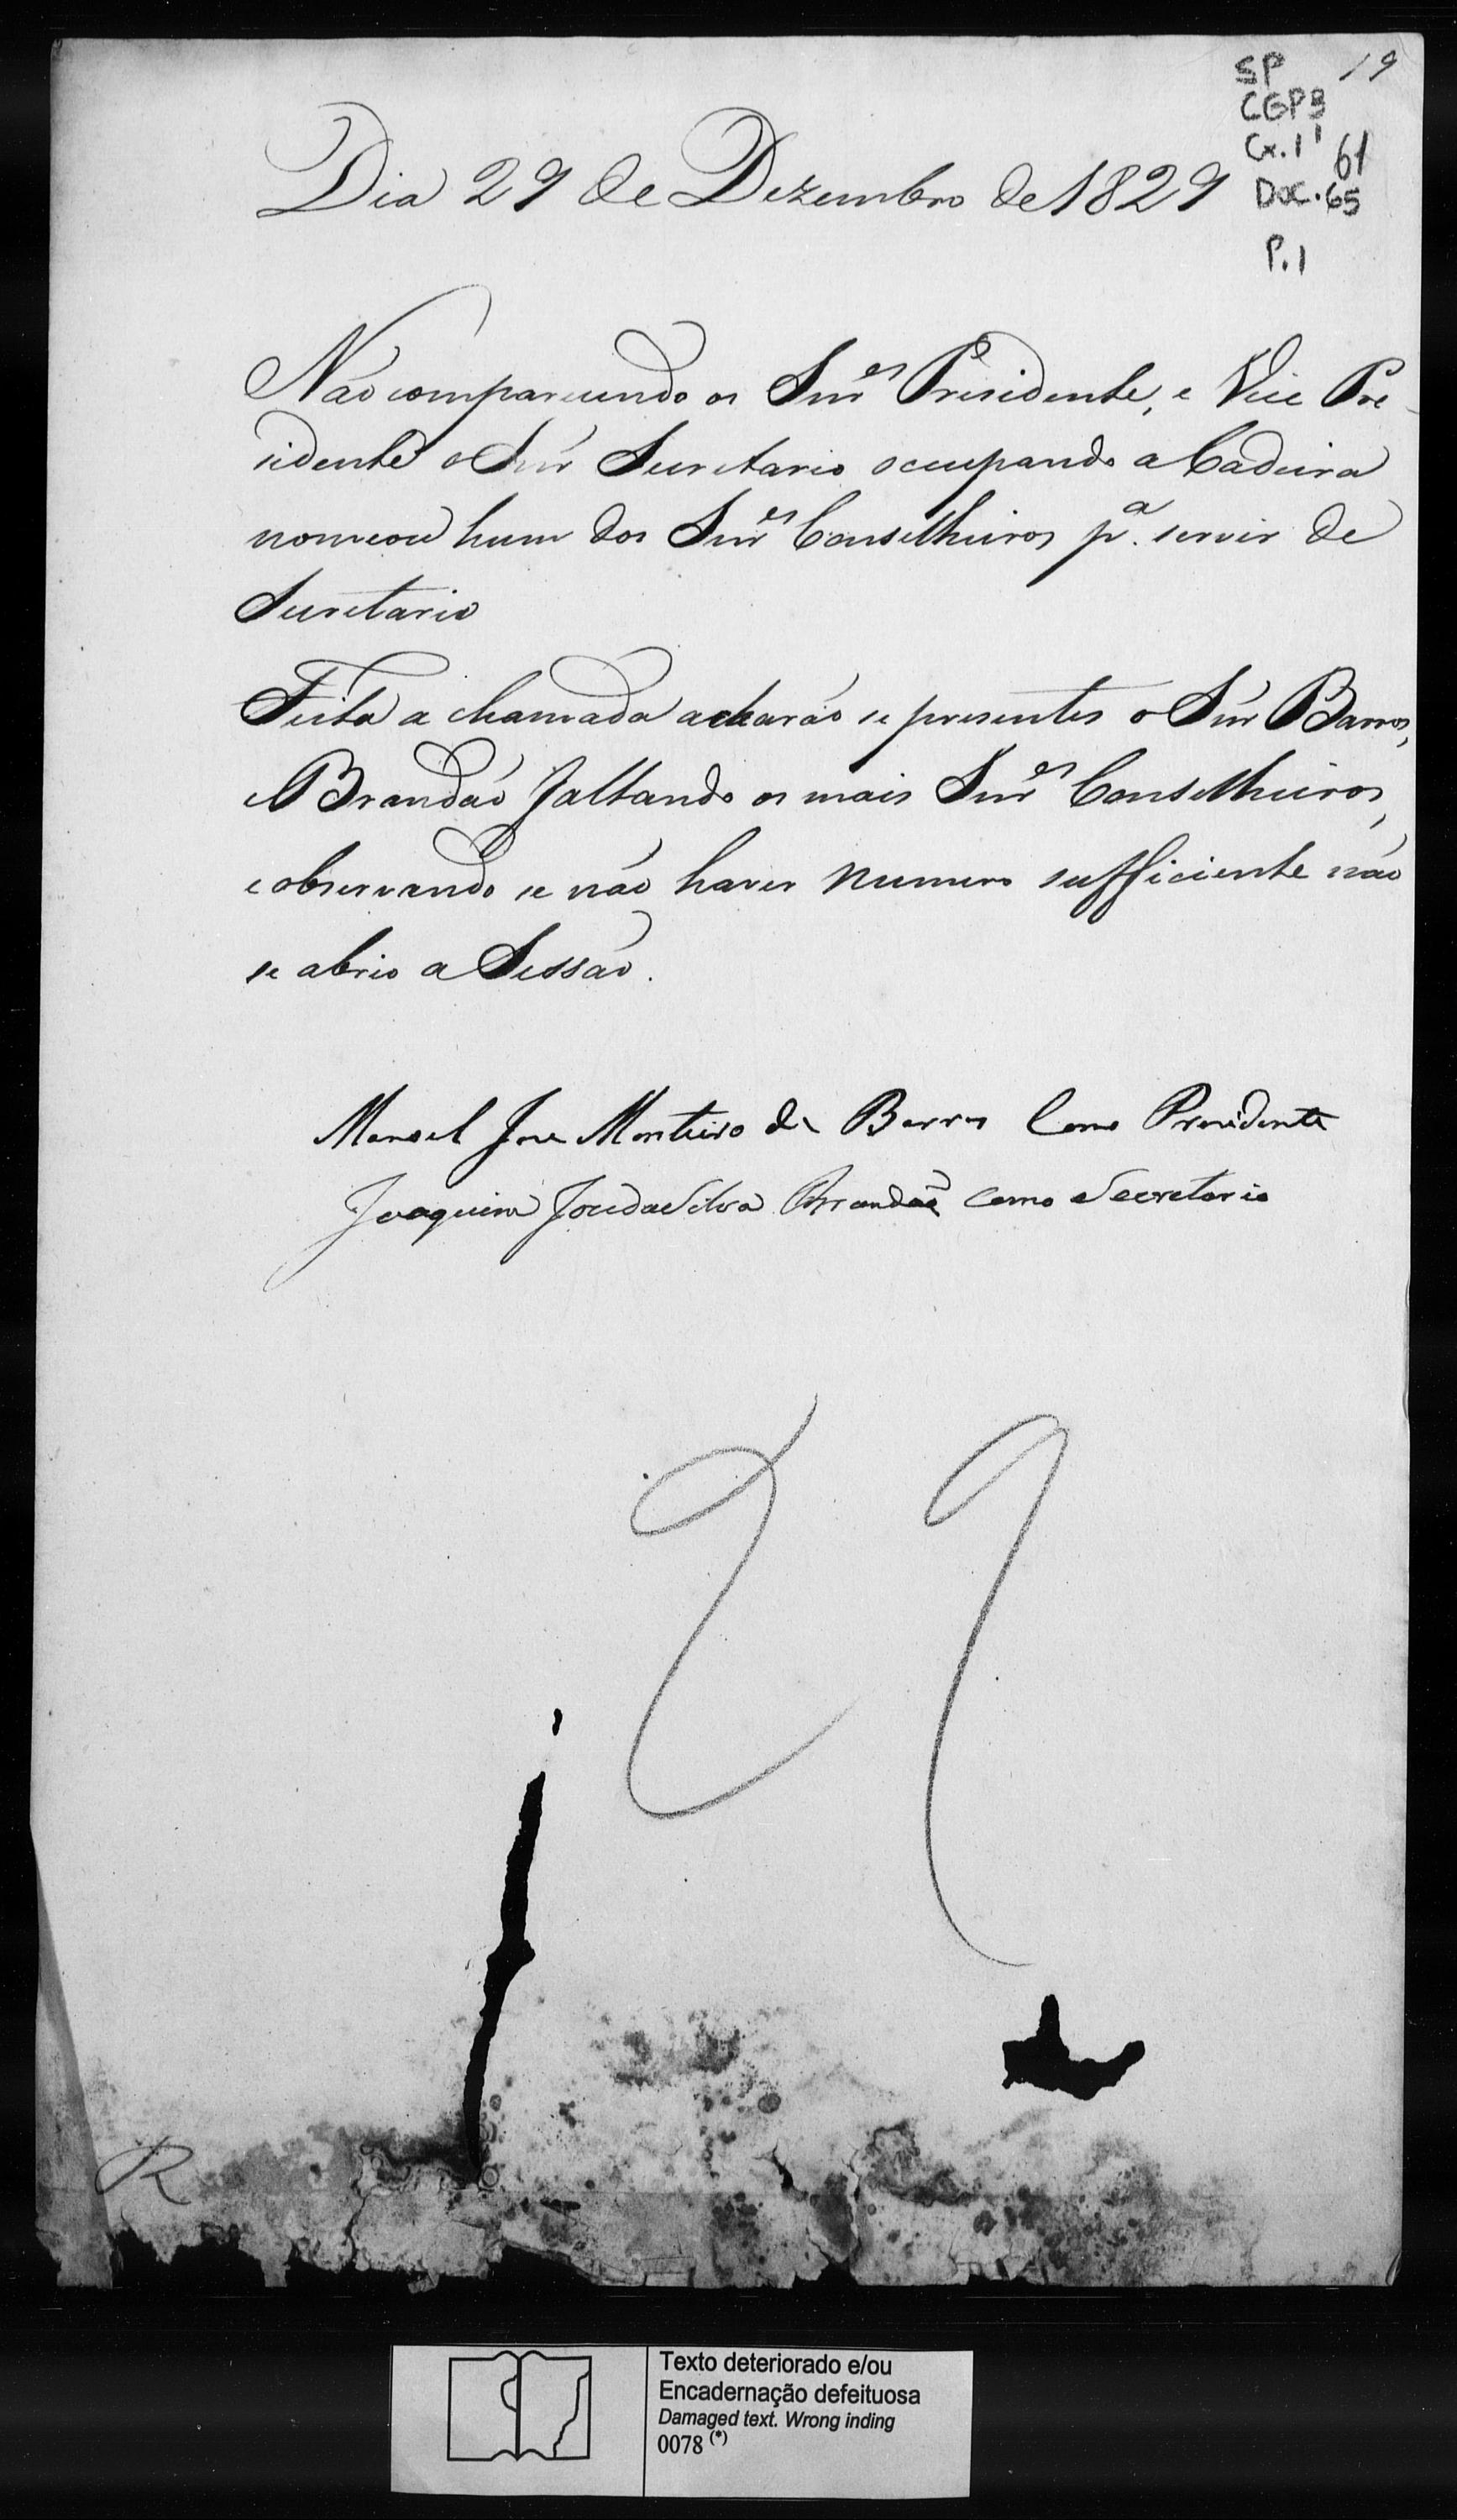 SP 19
CGP3
Cx. 11
61
Doc. 65
P. 1
Dia 29 de Dezembro de 1829
Não comparecendo os Snr.es Presidente, e Vice Pre-
sidente o Snr Secretario occupando a Cadeira
nomeou hum dos Snr.es Conselheiros p.a servir de
Secretario
Feita a chamada acharão se presentes o Snr Barros,
e Brandão faltando os mais Snr.es Conselheiros,
e observando se não haver numero sufficiente não
se abrio a Sessão.
Manoel Jose Monteiro de Barros Como Presidente
Joaquim Jose da Silva Brandão como Secretario
29
R
Texto deteriorado e/ou
Encadernação defeituosa
Damaged text. Wrong inding
0078 (*)